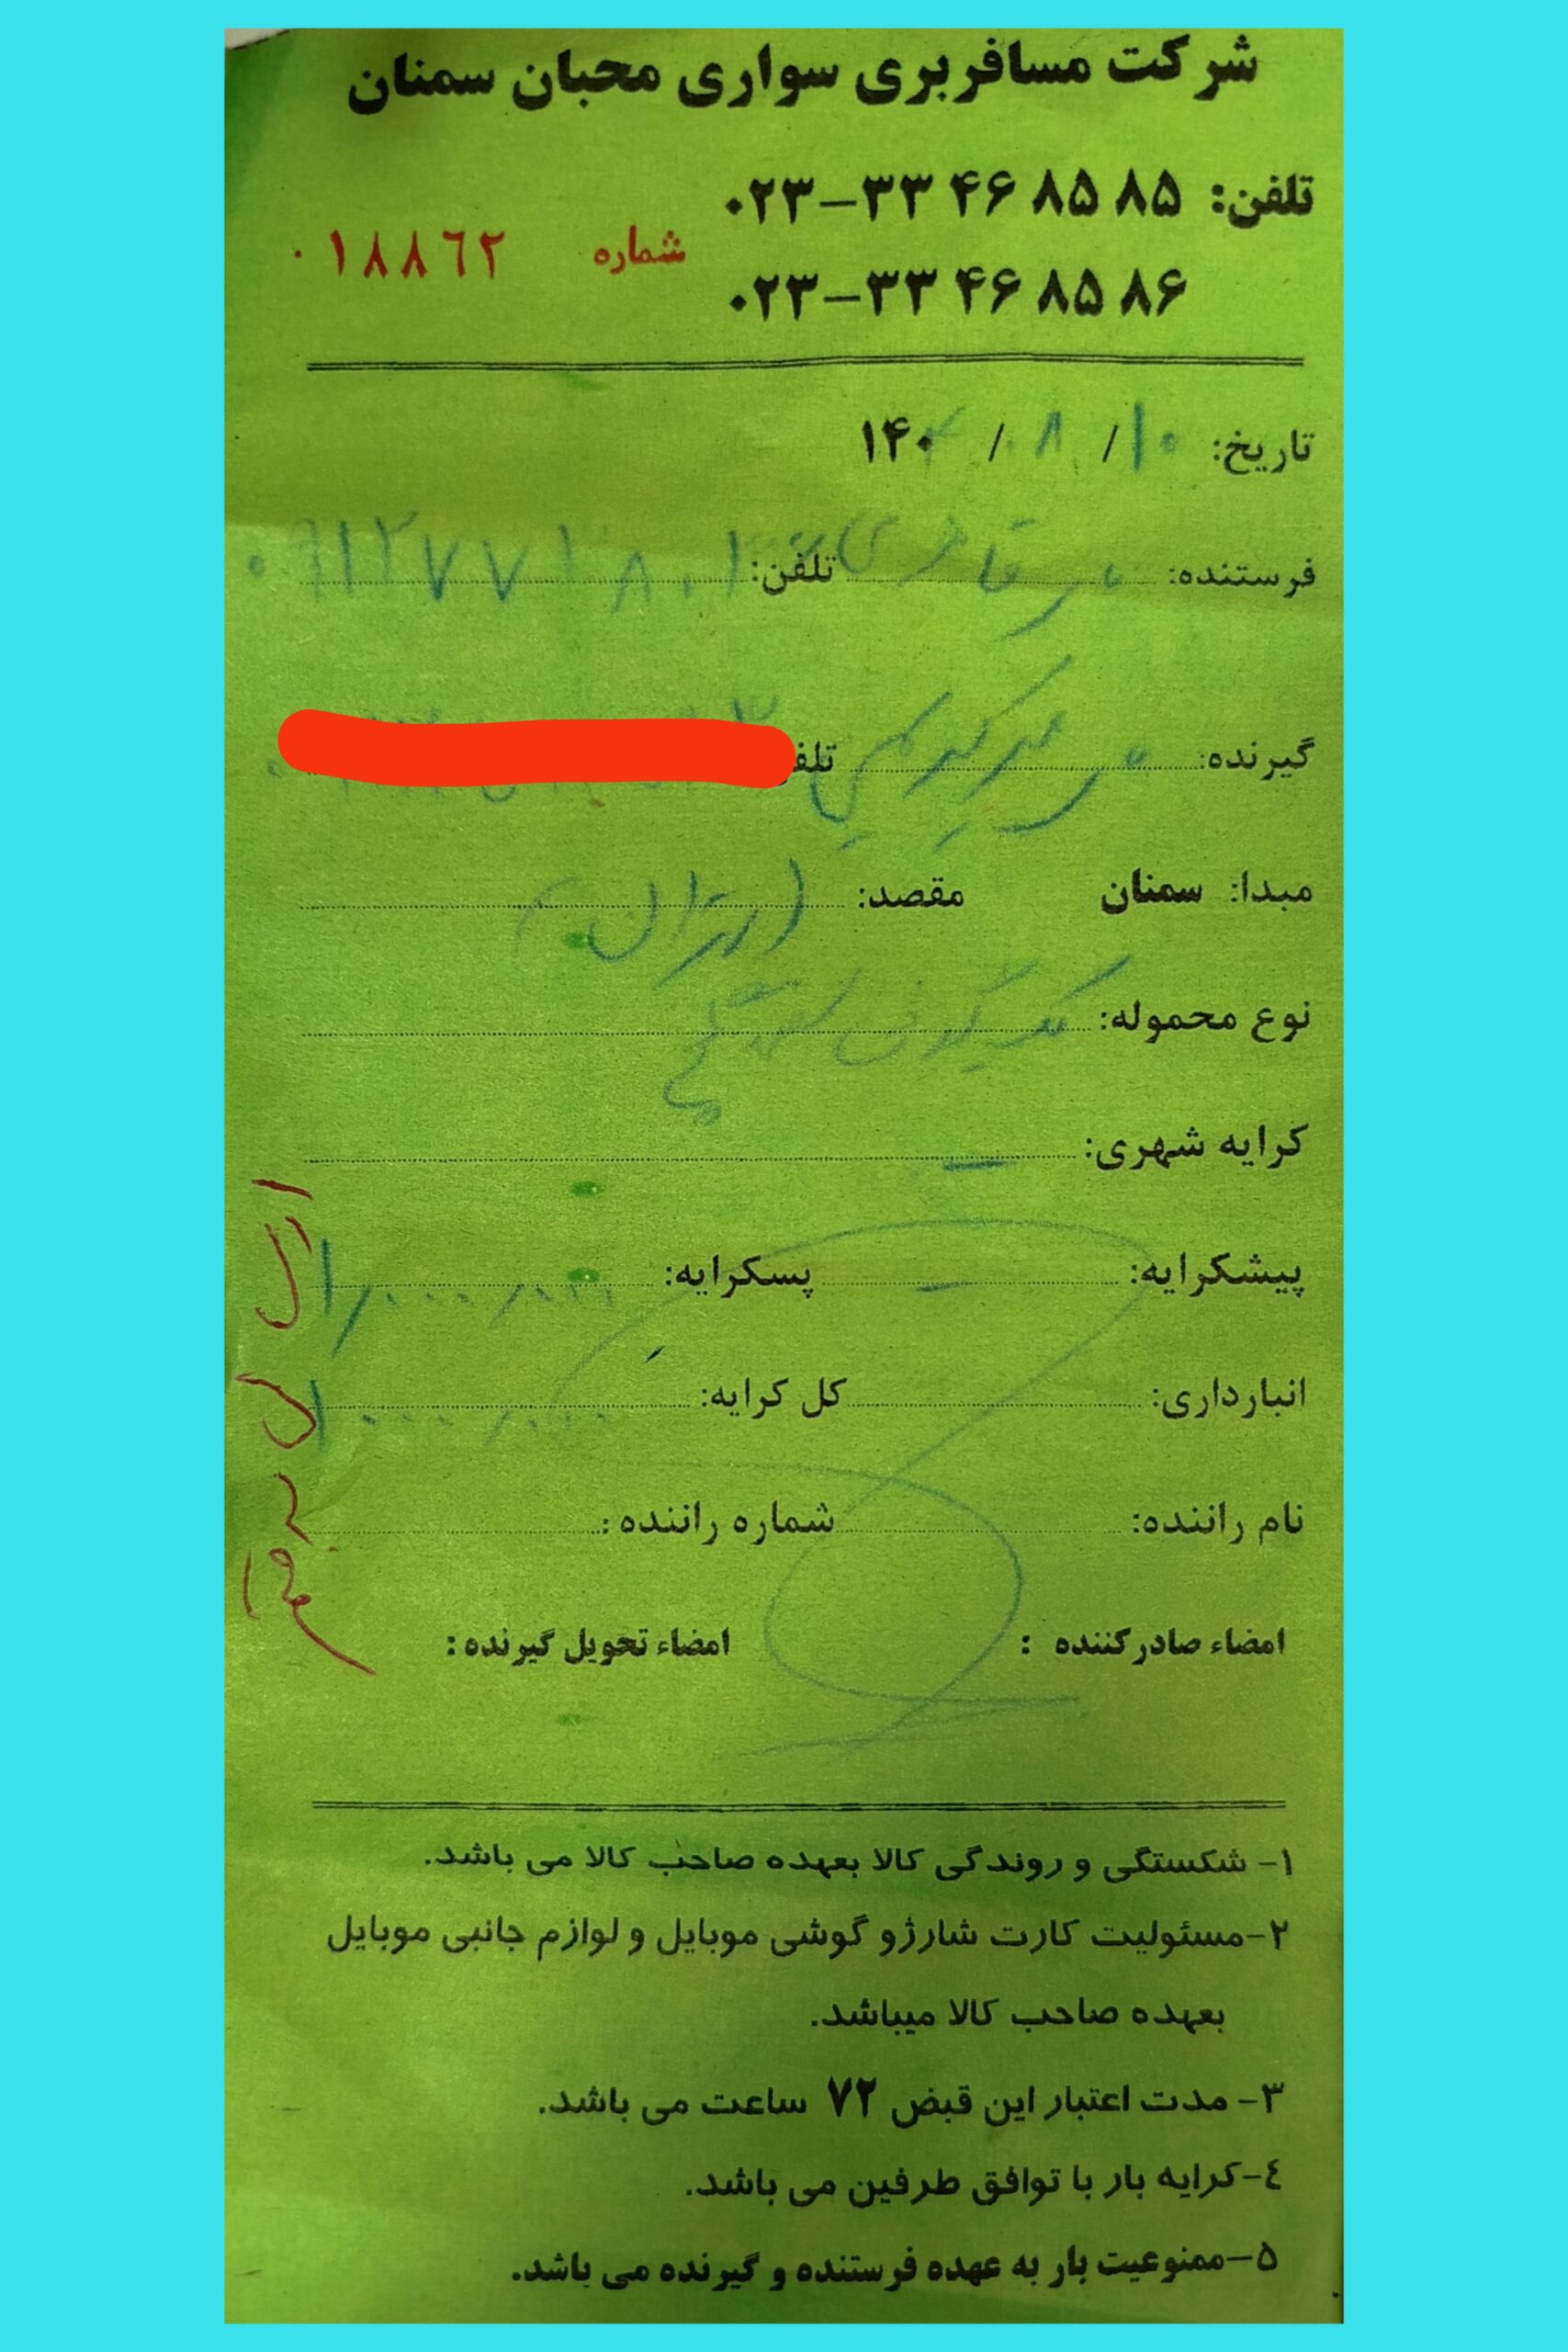 شرکت مسافربری سواری محبان سمنان
تلفن: ۰۲۳-۳۳ ۴۶ ۸۵ ۸۵
شماره ۰۱۸۸٦۲
۰۲۳-۳۳ ۴۶ ۸۵ ۸۶
تاریخ: ۱۰ / ۰۸ / ۱۴۰۴
فرستنده: تلفن: ۰۹۱۲۷۷۱۸۰۱
گیرنده:
مبدا: سمنان مقصد: تهران
نوع محموله:
کرایه شهری: -
پیشکرایه: - پسکرایه: ۱/۰۰۰/۰۰۰
انبارداری: کل کرایه: ۱۰۰۰/۰۰۰
نام راننده: شماره راننده:
امضاء صادرکننده : امضاء تحویل گیرنده:
۱- شکستگی و روندگی کالا بعهده صاحب کالا می باشد.
۲-مسئولیت کارت شارژو گوشی موبایل و لوازم جانبی موبایل
بعهده صاحب کالا میباشد.
۳- مدت اعتبار این قبض ۷۲ ساعت می باشد.
٤-کرایه بار با توافق طرفین می باشد.
۵-ممنوعیت بار به عهده فرستنده و گیرنده می باشد.